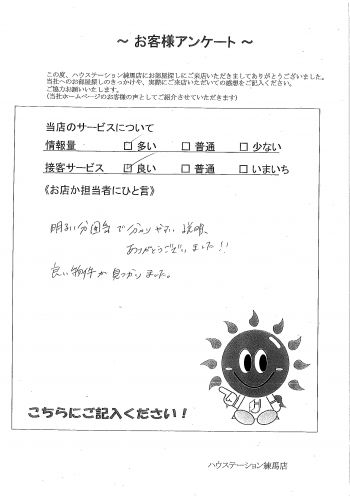 ～ お客様アンケート ～
この度、ハウステーション練馬店にお部屋探しにご来店いただきましてありがとうございました。
当社へのお部屋探しのきっかけや、実際にご来店いただいての感想をご記入ください。
ご協力お願いいたします。
(当社ホームページのお客様の声としてご紹介させていただきます)
当店のサービスについて
情報量 □ 多い □ 普通 □ 少ない
接客サービス □ 良い □ 普通 □ いまいち
《お店か担当者にひと言》
明るい分囲気で分かりやすい説明、
ありがとうございました!!
良い物件が見つかりました。
こちらにご記入ください!
ハウステーション練馬店